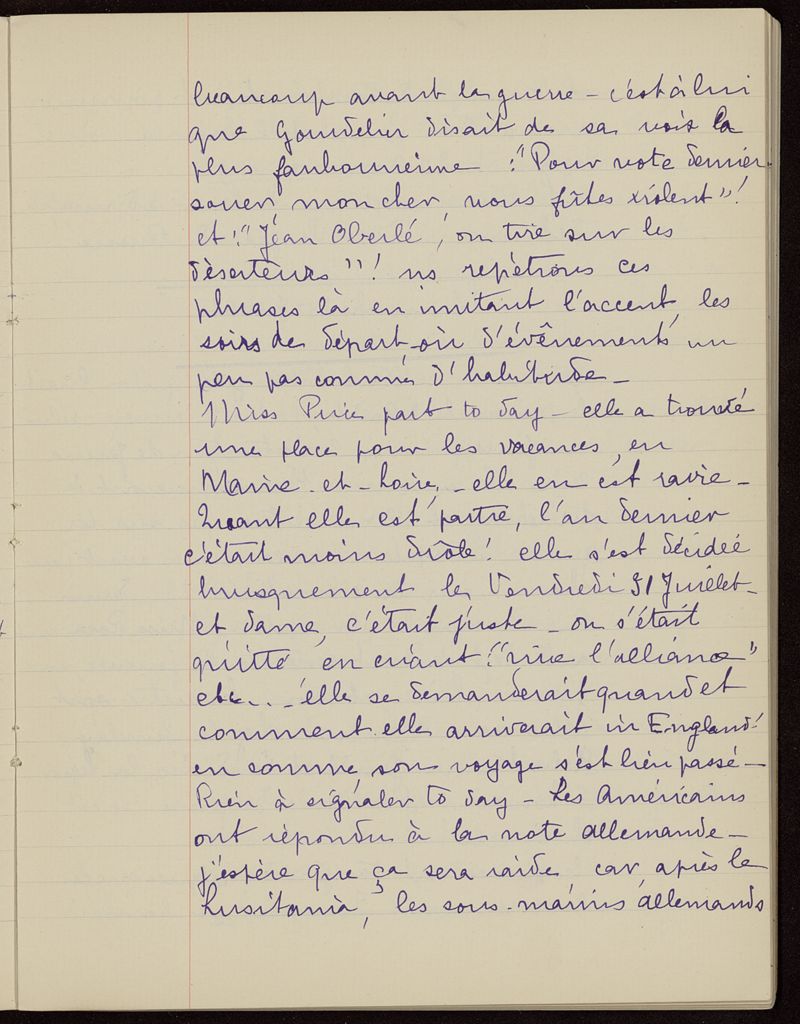 beaucoup avant la guerre – c'est à lui
que Goudelier disait de sa voix la
plus faubourienne : "Pour vote dernier
souer, mon cher, vous fûtes violent"!
et : "Jean Oberlé, on tire sur les
déserteurs"! ns repétions ces
phrases là en imitant l'accent, les
soirs de départ où d'évênements un
peu pas comme d'habitude –
Miss Price part to day – elle a trouvé
une place pour les vacances, en
Maine-et-Loire, – elle en est ravie –
Quant elle est partie, l'an dernier
c'était moins drôle! elle s'est décidée
brusquement le Vendredi 31 Juillet –
et dame, c'était juste – on s'était
quitté en criant : "vive l'alliance"
etc... – elle se demanderait quand et
comment elle arriverait in England!
en somme, son voyage s'est bien passé –
Rien à signaler to day – Les Américains
ont répondu à la note allemande –
j'espère que ça sera raide car après le
Lusitania, les sous-marins allemands